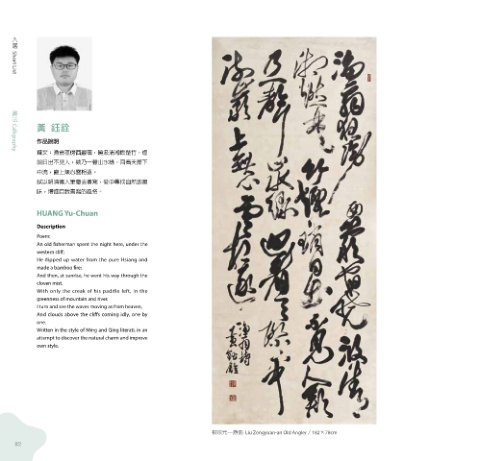 入選 Short List
書法 Calligraphy
黃 鈺銓
作品說明
釋文：漁翁夜傍西巖宿，曉汲清湘燃楚竹。煙
銷日出不見人，欸乃一聲山水綠。迴看天際下
中流，巖上無心雲相逐。
HUANG Yu-Chuan
Description
Poem:
An old fisherman spent the night here, under the
western cliff;
He dipped up water from the pure Hsiang and
made a bamboo fire;
And then, at sunrise, he went his way through the
cloven mist,
With only the creak of his paddle left, in the
greenness of mountain and river.
I turn and see the waves moving as from heaven,
And clouds above the cliffs coming idly, one by
one.
Written in the style of Ming and Qing literati in an
attempt to discover the natural charm and improve
own style.
漁翁夜傍西巖宿曉汲清
湘燃楚竹煙銷日出不見人欸
乃一聲山水綠迴看天際下中
流巖上無心雲相逐
柳宗元—漁翁 Liu Zongyuan-an Old Angler